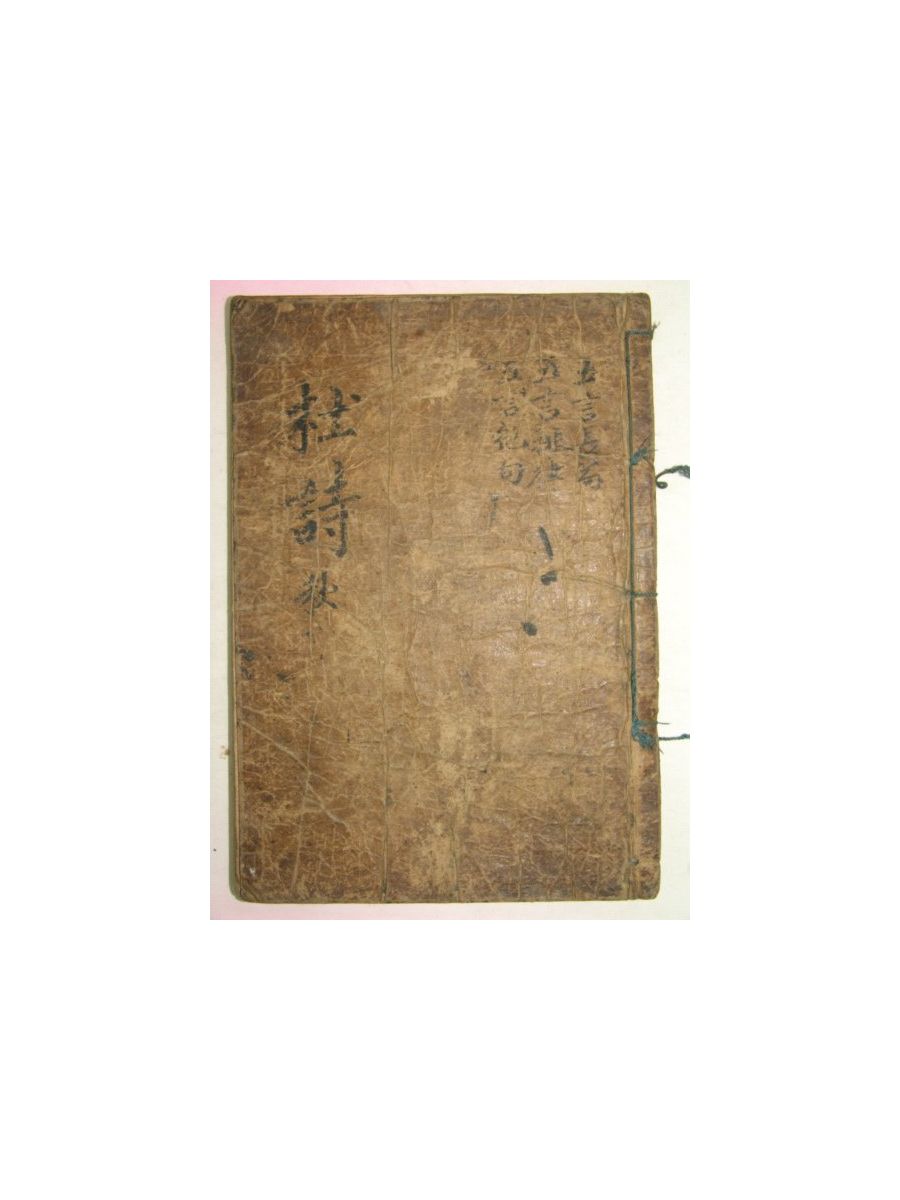 五言長篇
五言排律
五言絶句
杜詩 秋